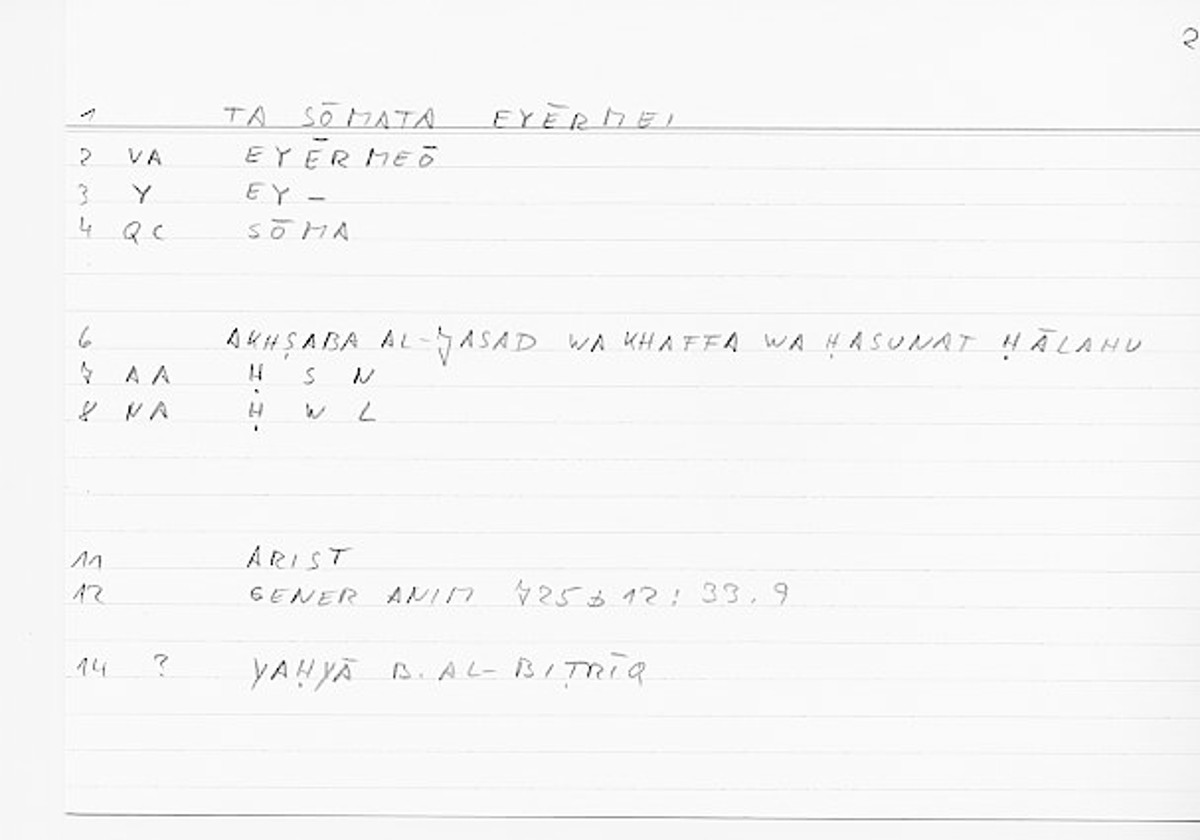 2
1 TA SŌMATA EYĒRMEI
2 VA EYĒRMEŌ
3 Y EY –
4 QC SŌMA
6 AKHṢABA AL-JASAD WA KHAFFA WA ḤASUNAT ḤĀLAHU
7 AA Ḥ S N
8 NA Ḥ W L
11 ARIST
12 GENER ANIM 725 b 12 : 33.9
14 ? YAḤYĀ B. AL-BIṬRĪQ